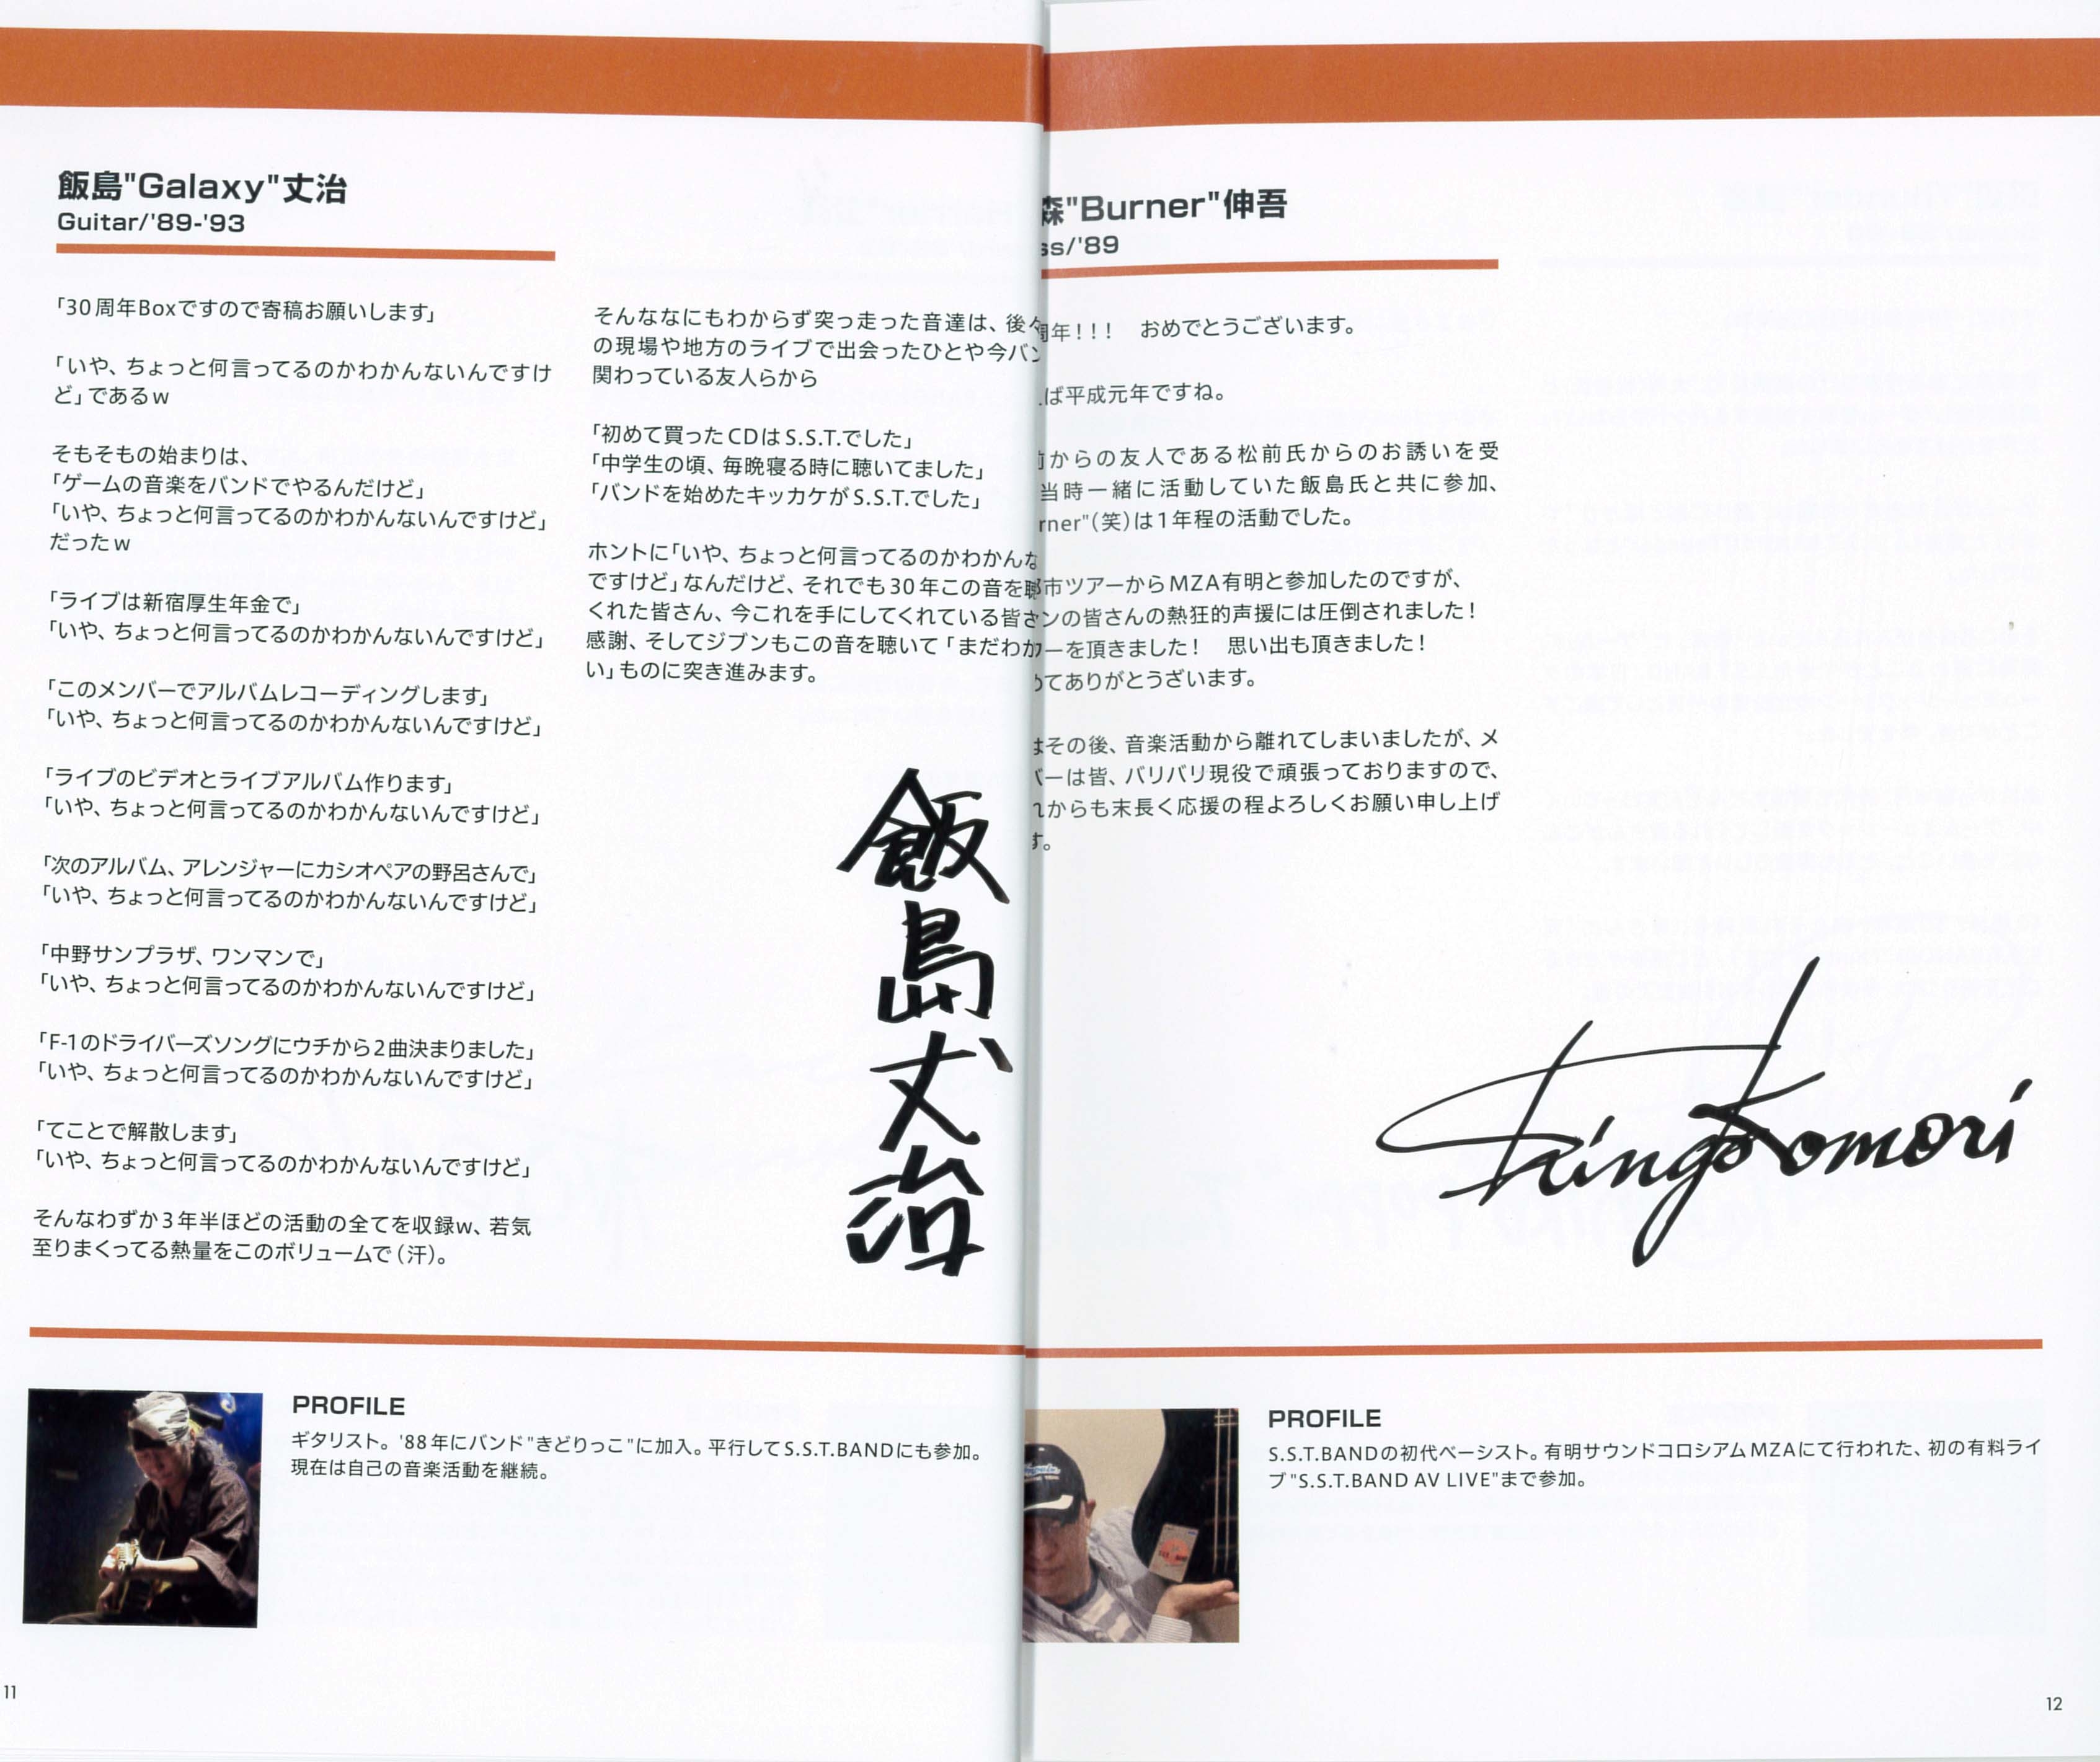 飯島"Galaxy"丈治
Guitar/'89-'93
「30周年Boxですので寄稿お願いします」
「いや、ちょっと何言ってるのかわかんないんですけ
ど」であるw
そもそもの始まりは、
「ゲームの音楽をバンドでやるんだけど」
「いや、ちょっと何言ってるのかわかんないんですけど」
だったw
「ライブは新宿厚生年金で」
「いや、ちょっと何言ってるのかわかんないんですけど」
「このメンバーでアルバムレコーディングします」
「いや、ちょっと何言ってるのかわかんないんですけど」
「ライブのビデオとライブアルバム作ります」
「いや、ちょっと何言ってるのかわかんないんですけど」
「次のアルバム、アレンジャーにカシオペアの野呂さんで」
「いや、ちょっと何言ってるのかわかんないんですけど」
「中野サンプラザ、ワンマンで」
「いや、ちょっと何言ってるのかわかんないんですけど」
「F-1のドライバーズソングにウチから2曲決まりました」
「いや、ちょっと何言ってるのかわかんないんですけど」
「てことで解散します」
「いや、ちょっと何言ってるのかわかんないんですけど」
そんなわずか3年半ほどの活動の全てを収録w、若気
至りまくってる熱量をこのボリュームで（汗）。
そんななにもわからず突っ走った音達は、後々
の現場や地方のライブで出会ったひとや今バン
関わっている友人らから
「初めて買ったCDはS.S.T.でした」
「中学生の頃、毎晩寝る時に聴いてました」
「バンドを始めたキッカケがS.S.T.でした」
ホントに「いや、ちょっと何言ってるのかわかんな
ですけど」なんだけど、それでも30年この音を聴
くれた皆さん、今これを手にしてくれている皆さ
感謝、そしてジブンもこの音を聴いて「まだわか
い」ものに突き進みます。
飯島丈治
PROFILE
ギタリスト。'88年にバンド"きどりっこ"に加入。平行してS.S.T.BANDにも参加。
現在は自己の音楽活動を継続。
11
森"Burner"伸吾
ss/'89
周年！！！　おめでとうございます。
ば平成元年ですね。
前からの友人である松前氏からのお誘いを受
当時一緒に活動していた飯島氏と共に参加、
rner"（笑）は1年程の活動でした。
市ツアーからMZA有明と参加したのですが、
ンの皆さんの熱狂的声援には圧倒されました！
ーを頂きました！　思い出も頂きました！
てありがとうざいます。
はその後、音楽活動から離れてしまいましたが、メ
バーは皆、バリバリ現役で頑張っておりますので、
れからも末長く応援の程よろしくお願い申し上げ
す。
Shingo Komori
PROFILE
S.S.T.BANDの初代ベーシスト。有明サウンドコロシアムMZAにて行われた、初の有料ライ
ブ"S.S.T.BAND AV LIVE"まで参加。
12